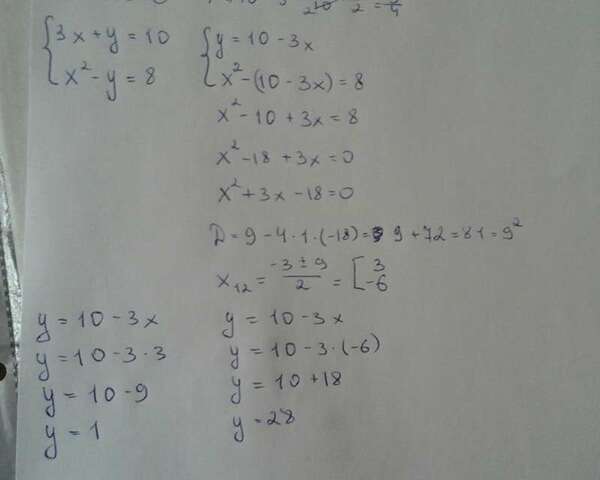 {3x + y = 10
x² - y = 8
{y = 10 - 3x
x² - (10 - 3x) = 8
x² - 10 + 3x = 8
x² - 18 + 3x = 0
x² + 3x - 18 = 0
D = 9 - 4 · 1 · (-18) = 9 + 72 = 81 = 9²
x₁₂ = (-3 ± 9)/2 = [3
-6
y = 10 - 3x
y = 10 - 3 · 3
y = 10 - 9
y = 1
y = 10 - 3x
y = 10 - 3 · (-6)
y = 10 + 18
y = 28